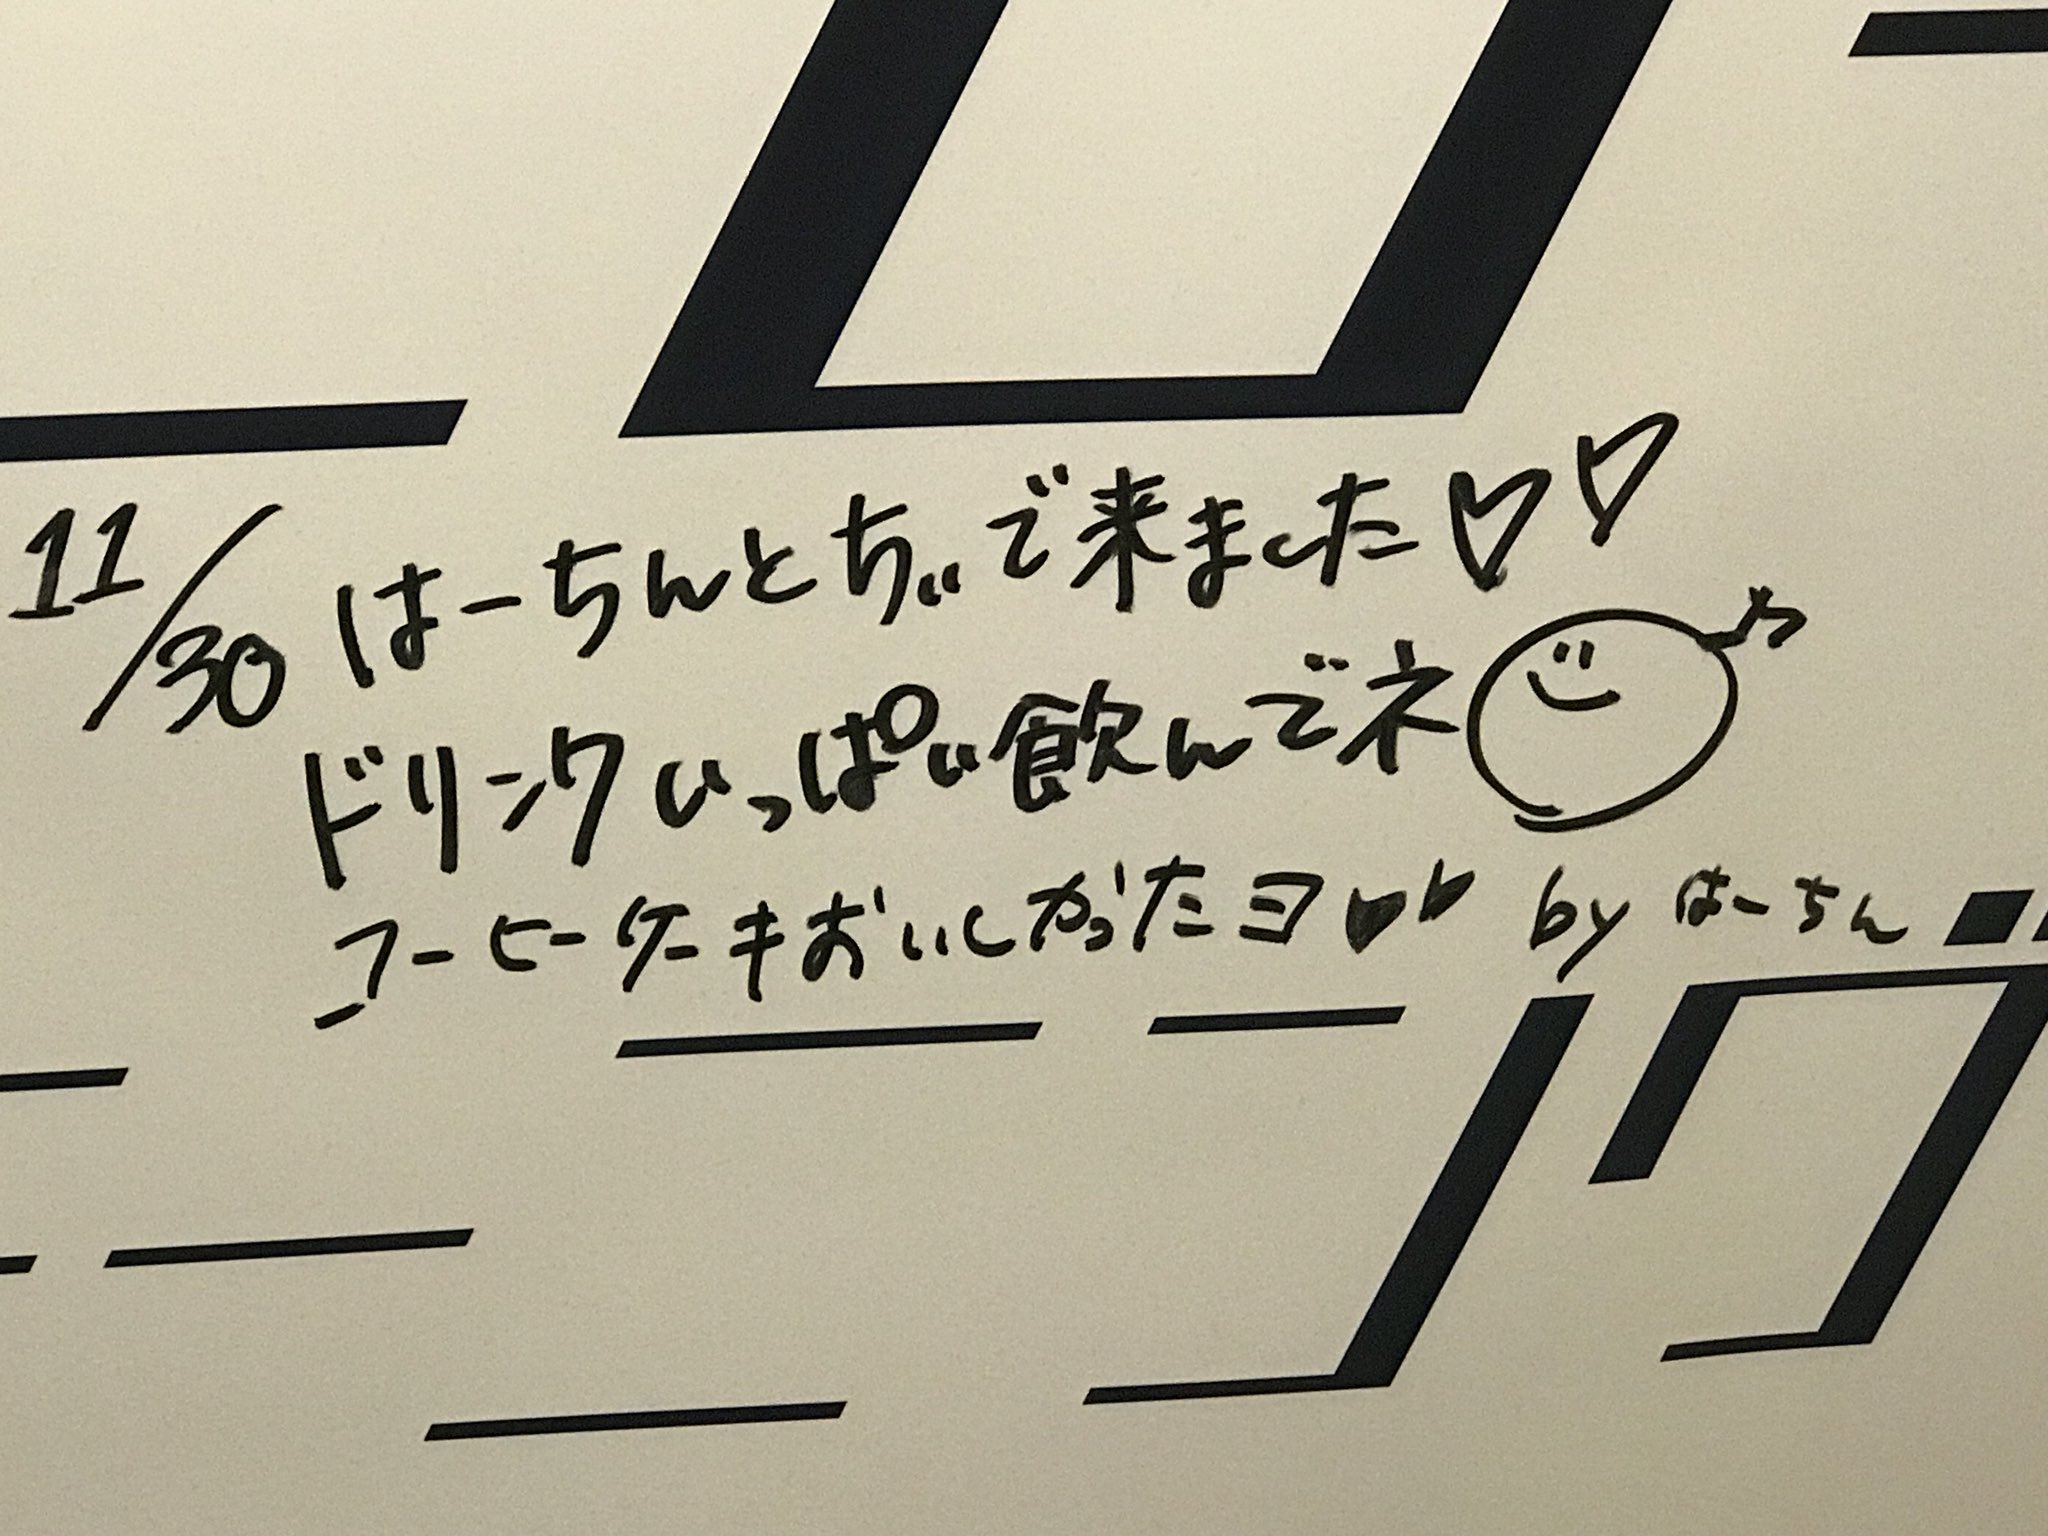 11/30 はーちんとぢぃで来ました♡♡
ドリンクいっぱい飲んでネ
コーヒーケーキおいしかったヨ♥♥ by はーちん